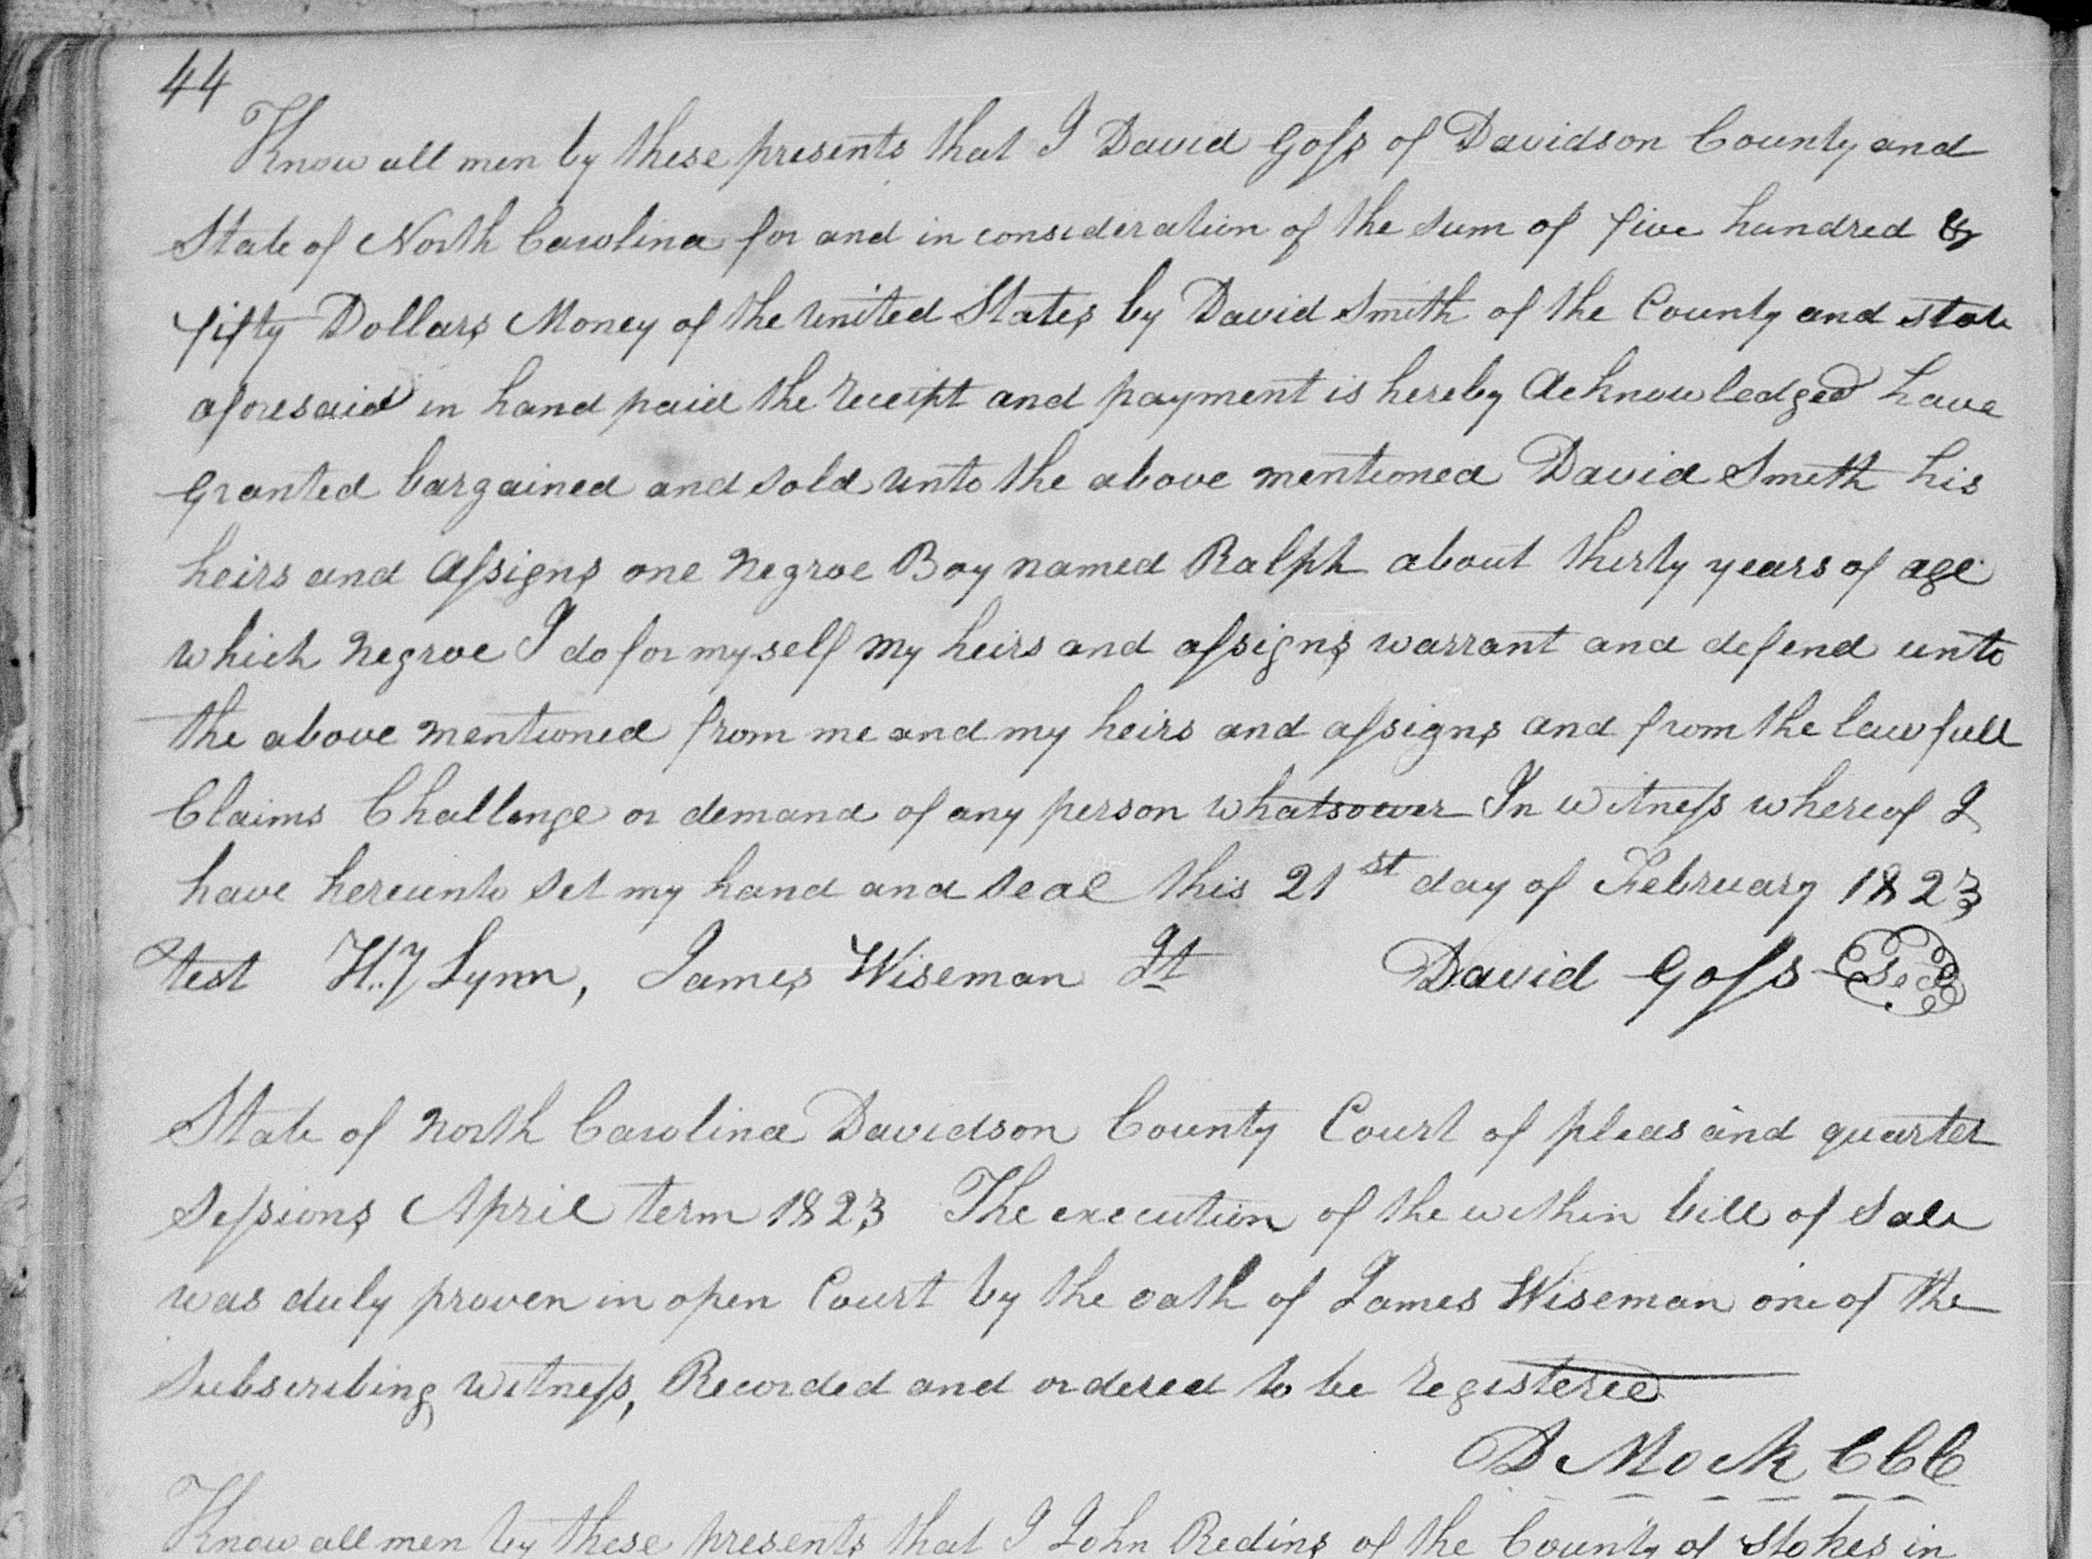 44
Know all men by these presents that I David Goss of Davidson County and
State of North Carolina for and in consideration of the sum of five hundred &
fifty Dollars Money of the United States by David Smith of the County and state
aforesaid in hand paid the receipt and payment is hereby Acknowledged have
granted bargained and sold unto the above mentioned David Smith his
heirs and Assigns one Negroe Boy named Ralph about thirty years of age
which Negroe I do for myself my heirs and assigns warrant and defend unto
the above mentioned from me and my heirs and assigns and from the lawfull
Claims Challenge or demand of any person whatsoever In witness whereof I
have hereunto set my hand and seal this 21st day of February 1823
test H.Y Lynn, James Wiseman Jt David Goss Seal
State of North Carolina Davidson County Court of pleas and quarter
Sessions April term 1823 The execution of the within bill of Sale
was duly proven in open Court by the oath of James Wiseman one of the
Subscribing witness, Recorded and ordered to be registered
D Mock CCC
Know all men by these presents that I John Reding of the County of Stokes in